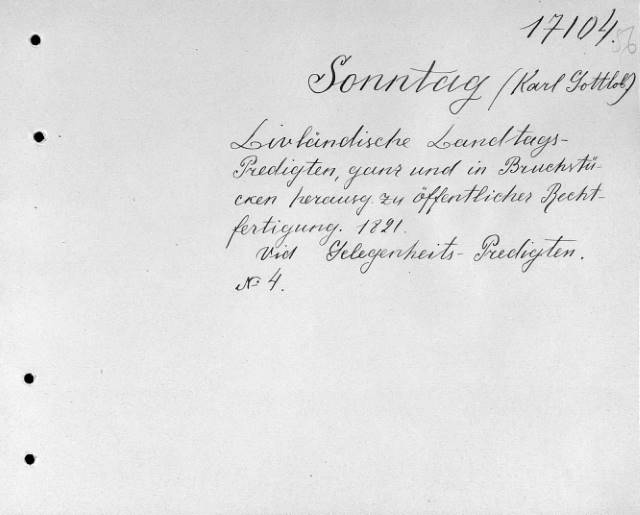 17104.
56
Sonntag (Karl Gottlob)
Livländische Landtags-
Predigten, ganz und in Bruchstü-
cken herausg. zu öffentlicher Recht-
fertigung. 1821.
Vid Gelegenheits-Predigten.
№ 4.